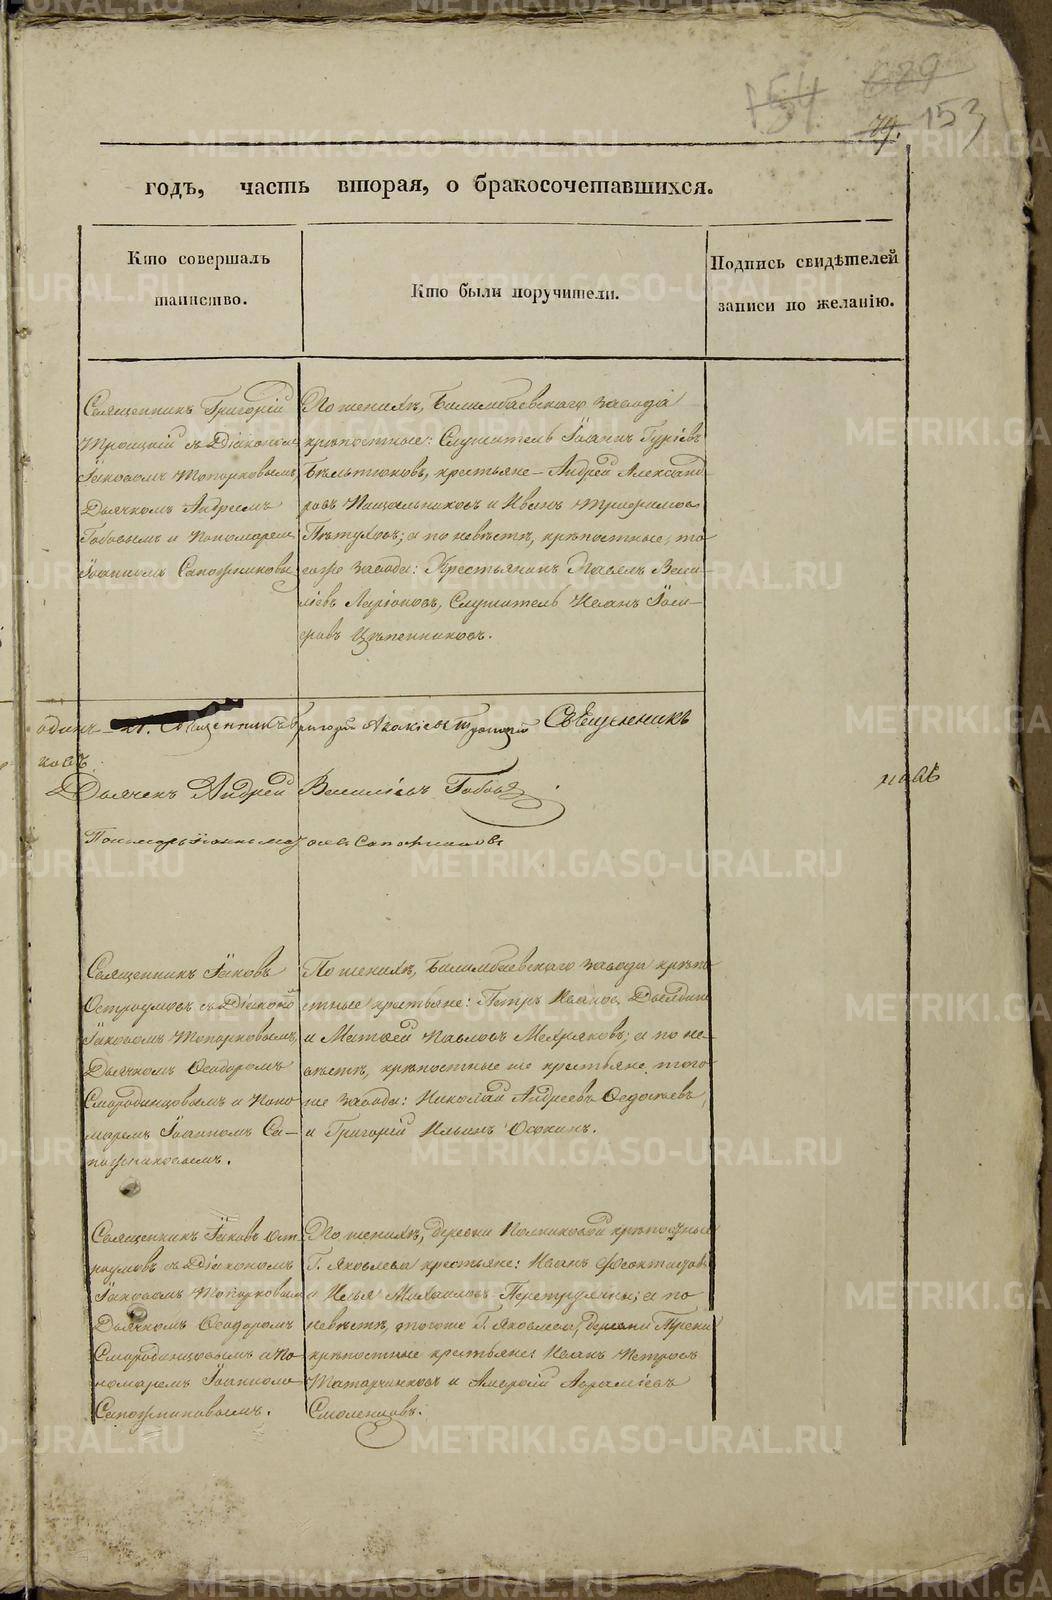 154 689
79. 153
годъ, часть вторая, о бракосочетавшихся.
Кто совершалъ
таинство.
Кто были поручители.
Подпись свидѣтелей
записи по желанію.
Священникъ Григорій
Троицкій съ Діакономъ
Іаковомъ Топорковымъ,
Дьячкомъ Андреемъ
Бабовымъ и Пономаремъ
Іоанномъ Сапожниковы
По женихѣ, Билимбаевскаго завода
крѣпостные: Служитель Іоаннъ Гуріевъ
Бѣльтюковъ, крестьяне – Андрей Александ
ровъ Пищальниковъ и Иванъ Трифимов
Пѣтуховъ; а по невѣстѣ, крѣпостные, то
гоже завода: Крестьянинъ Павелъ Васи
ліевъ Ларіоновъ, Служитель Иванъ Іоси
фовъ Цѣпенниковъ.
Священникъ Григорій Троицкій Священникъ
Дьячекъ Андрей Василіевъ Бабовъ
Пономарь Сапожниковъ
Священникъ Іаковъ
Остроумовъ съ Діакономъ
Іаковомъ Топорковымъ,
Дьячкомъ Ѳеодоромъ
Смородинцовымъ и Поно
маремъ Іоанномъ Са–
пожниковымъ.
По женихѣ, Билимбаевскаго завода крѣпо
стные крестьяне: Петръ Иванов
и Матѳей Павловъ Мехряковъ; а по не–
вѣстѣ, крѣпостные же крестьяне того
же завода: Николай Андреевъ Ѳедотьевъ,
и Григорій Ильинъ Осокинъ.
Священникъ Іаковъ Ост
роумовъ съ Діакономъ
Іаковомъ Топорковым
Дьячкомъ Ѳеодоромъ
Смородинцовымъ и По
номаремъ Іоанномъ
Сапожниковымъ.
По женихѣ, деревни крѣпостные
Г. Яковлева крестьяне: Иванъ
и Илья Михайловъ а по
невѣстѣ, тогоже Г. Яковлева, деревни
крѣпостные крестьяне Иванъ Петровъ
Татарчинковъ и Амвросій Авраміевъ
Смоленцовъ.